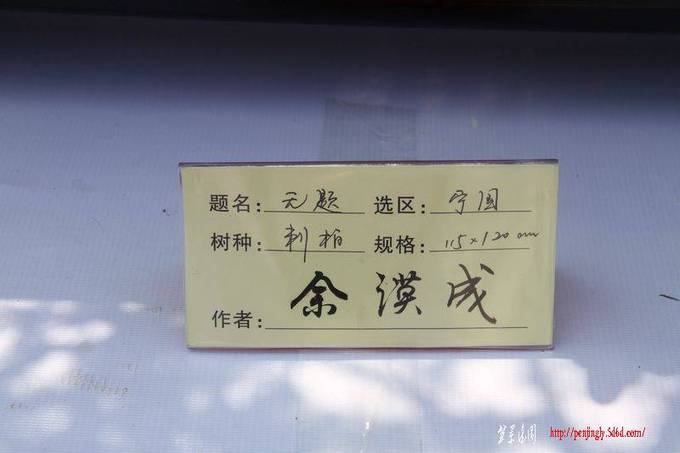 题名：无题 选区：宁国
树种：刺柏 规格：115×120cm
作者：余漠成
http://penjingly.5d6d.com/